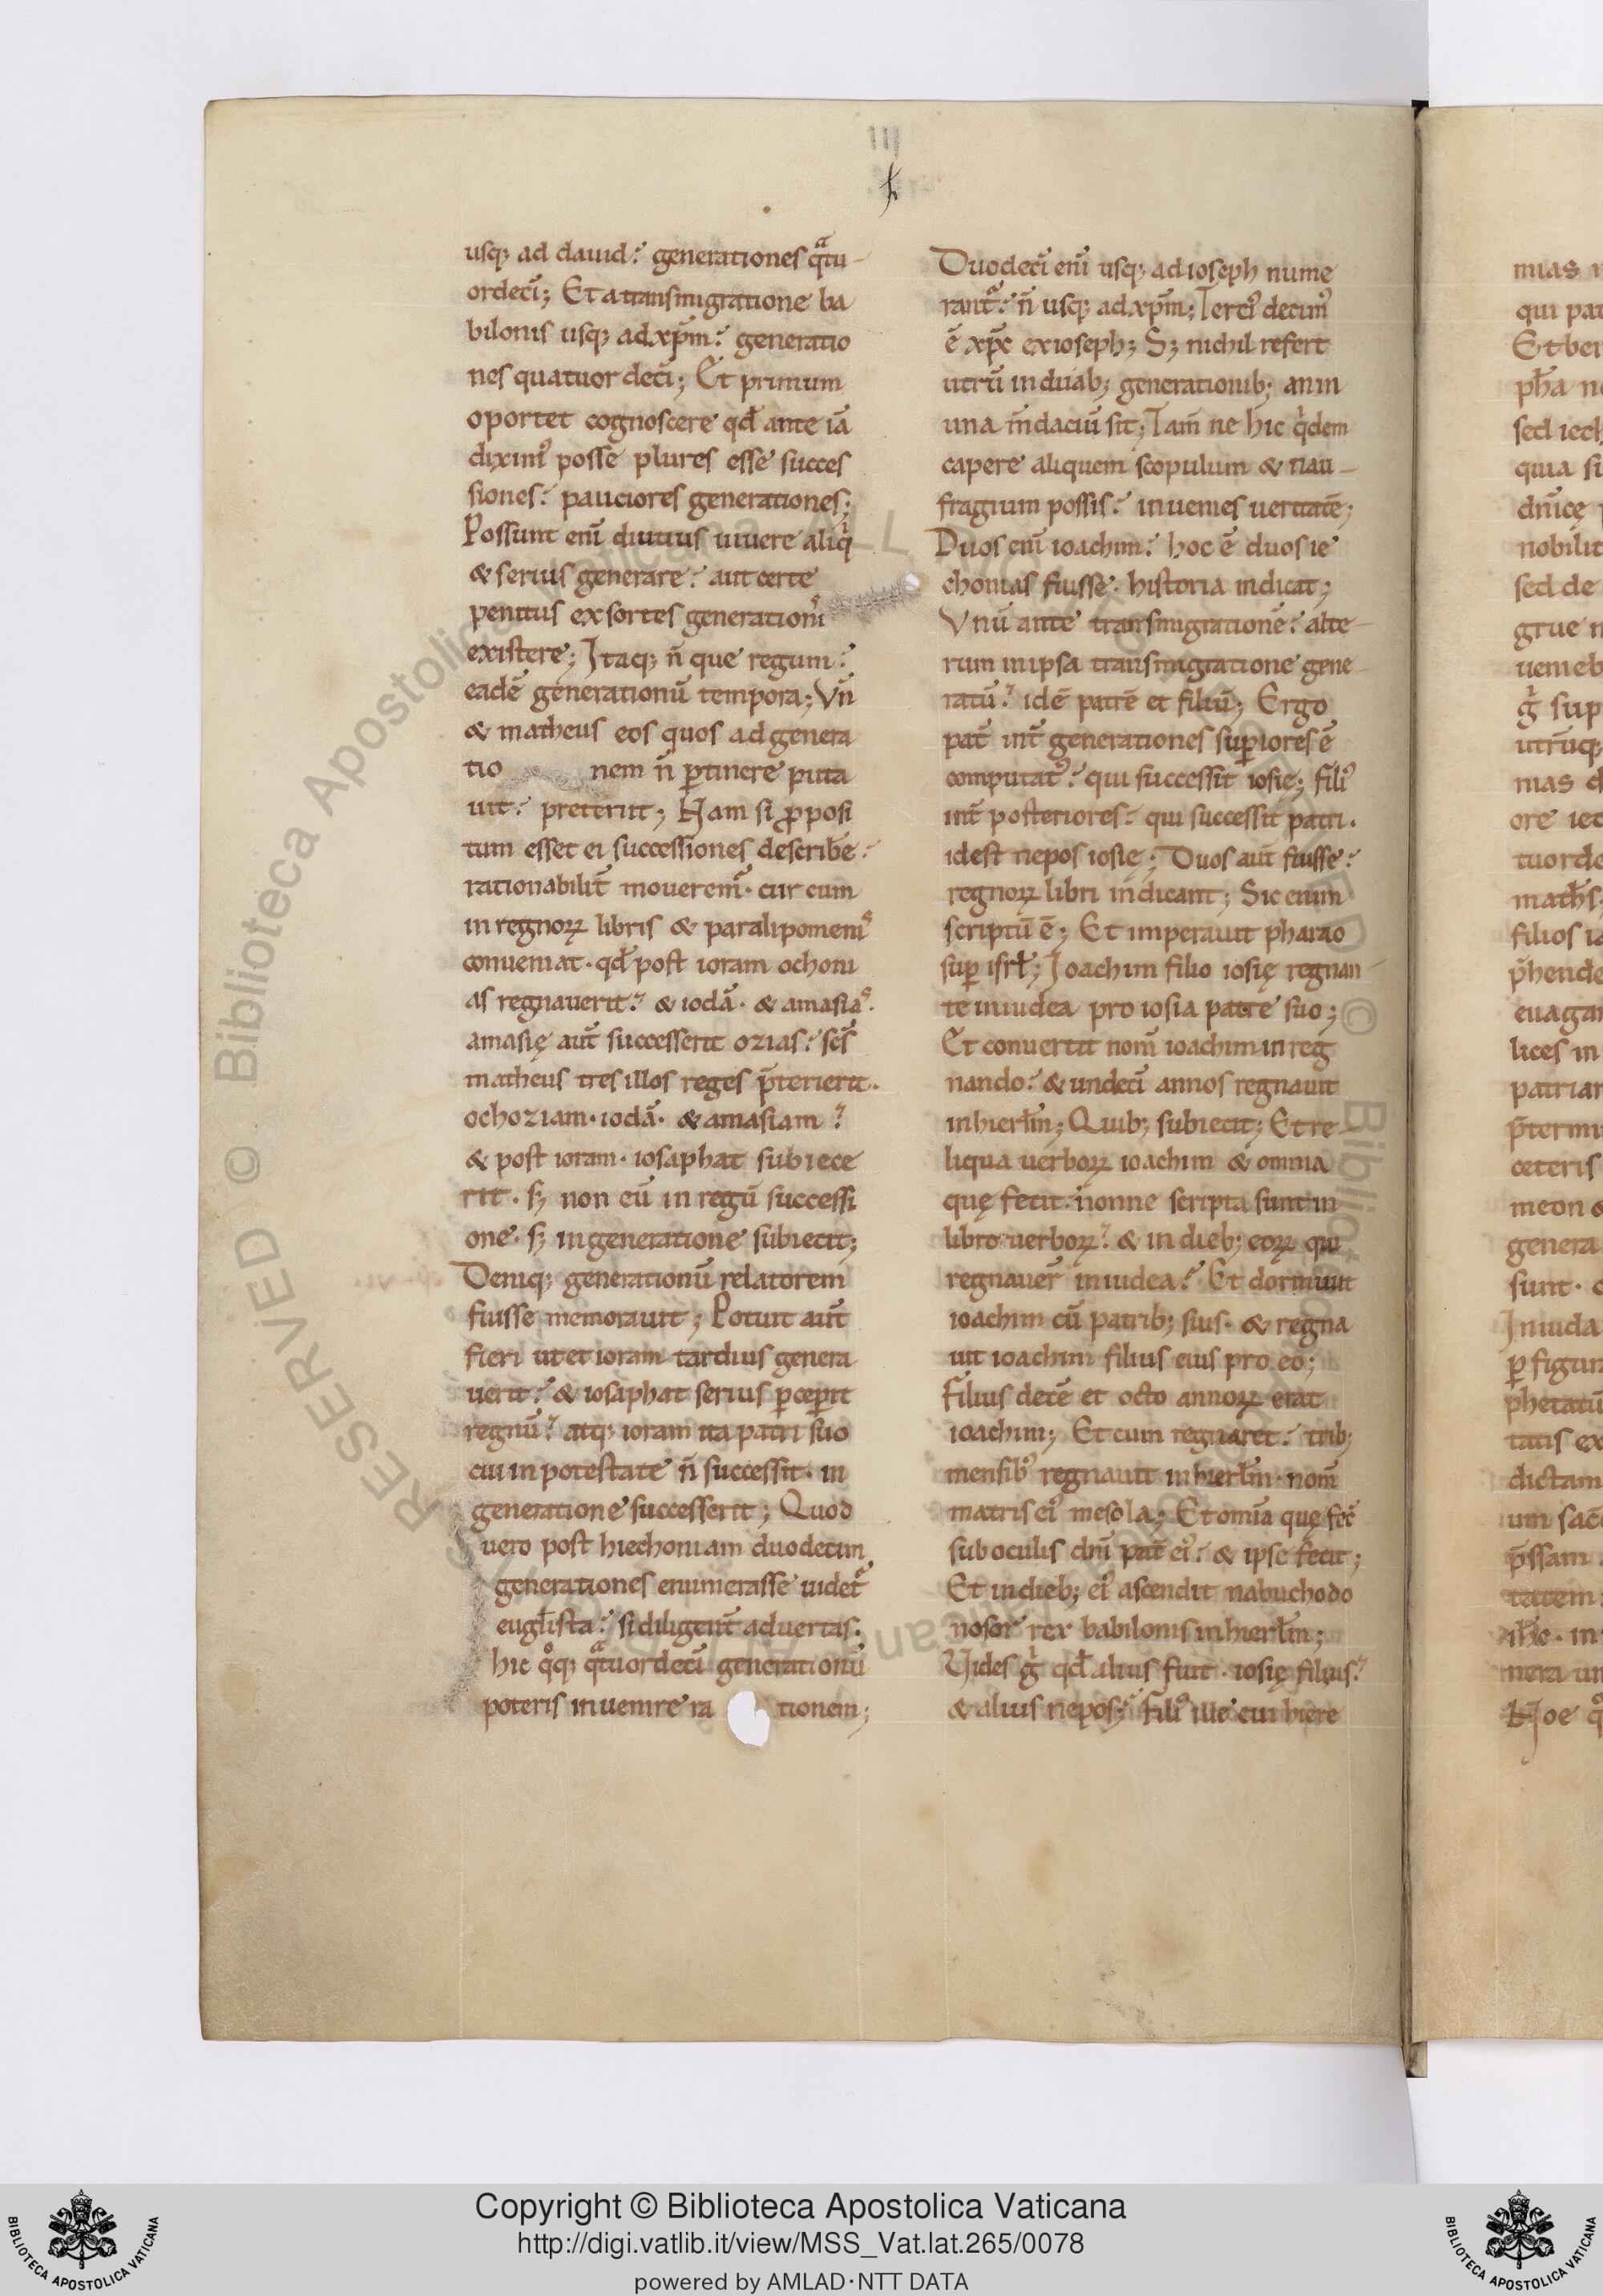 III
usq; ad dauid. generationes qͣtu-
ordeci̅; Et a transmigratione ba
bilonis usq; ad xp̅m. generatio
nes quatuor deci̅; Et primum
oportet cognoscere qd̅ ante ia̅
diximꝰ posse plures esse succes
siones. pauciores generationes;
Possunt eni̅ diutius uiuere aliqͥ
& serius generare. aut certe
penitus exsortes generationiˢ
existere; Itaq; n̅ que regum.
eade̅ generationu̅ tempora; Vn̅
& matheus eos quos ad genera
tio nem n̅ ꝑtinere puta
uit. preteriit; Nam si ꝓposi
tum esset ei successiones describ̅e.
rationabilit̅ mouerem᷑. cur cum
in regnoꝝ libris & paralipomeniˢ
conueniat. qd̅ post ioram ochoni
as regnauerit. & ioda̅. & amasiaˢ.
amasię aut̅ successerit ozias. sc̅s
matheus tres illos reges p̅terierit.
ochoziam. ioda̅. & amasiam.
& post ioram. iosaphat subiece
rit. sꝫ non eu̅ in regu̅ successi
one. sꝫ in generatione subiecit;
Deniq; generationu̅ relatorem
fuisse memorauit; Potuit aut̅
fieri ut et ioram tardius genera
uerit. & iosaphat serius ꝑceꝑit
regnu̅. atq; ioram ita patri suo
cui in potestate n̅ successit. in
generatione successerit; Quod
uero post hiechoniam duodecim
generationes enumerasse uidet᷑
eugl̅ista. si diligent̅ aduertas.
hic qͦq; qͣtuordeci̅ generationu̅
poteris inuenire ra tionem;
Duodeci̅ eni̅ usq; ad ioseph nume
rant᷑. n̅ usq; ad xp̅m; Terciꝰ decimꝰ
e̅ xp̅c ex ioseph; Sꝫ nichil refert
utru̅ in duab; generationib; an in
una m̅daciu̅ sit; Iam̅ ne hic qͥdem
capere aliquem scopulum & nau-
fragium possis. inuenies ueritate̅;
Duos eni̅ ioachim. hoc e̅ duos ie
chonias fuisse. historia indicat;
Vnu̅ ante transmigratione̅. alte-
rum in ipsa transmigratione gene-
ratu̅. ide̅ patre̅ et filiu̅; Ergo
pat̅ int̅ generationes suꝑiores e̅
computatꝰ. qui successit iosię; filiꝰ
int̅ posteriores. qui successit patri.
idest nepos iosię; Duos aut̅ fuisse.
regnoꝝ libri indicant; Sic enim
scriptu̅ e̅; Et imperauit pharao
suꝑ isrł; Ioachim filio iosię regnan-
te in iudea pro iosia patre suo;
Et conuertit nom̅ ioachim in reg
nando. & undeci̅ annos regnauit
in hierl̅m; Quib; subiecit; Et re-
liqua uerboꝝ ioachim & omnia
quę fecit. nonne scripta sunt in
libro uerboꝝ. & in dieb; eoꝝ qui
regnauer̅ in iudea. Et dormiuit
ioachim cu̅ patrib; suis. & regna
uit ioachim filius eius pro eo;
Filius dece̅ et octo annoꝝ erat
ioachim; Et cum regnaret. trib;
mensibꝰ regnauit in hierl̅m. nom̅
matris eiꝰ mesola; Et omi̅a quę fec̅
sub oculis dni̅ pat̅ eiꝰ. & ipse fecit;
Et in dieb; eiꝰ ascendit nabuchodo
nosor rex babilonis in hierl̅m;
Vides gͥ qd̅ alius fuit. iosię filius.
& alius nepos; filiꝰ ille cui hiere
Copyright © Biblioteca Apostolica Vaticana
http://digi.vatlib.it/view/MSS_Vat.lat.265/0078
powered by AMLAD·NTT DATA
BIBLIOTECA APOSTOLICA VATICANA
BIBLIOTECA APOSTOLICA VATICANA